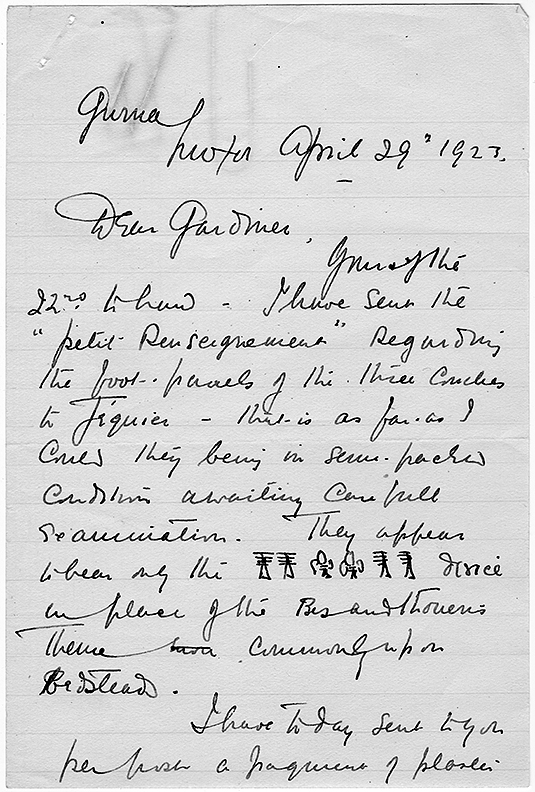 Gurna
Luxor April 29" 1923.
Dear Gardiner,
Yours of the
22nd to hand - I have sent the
"petit Renseignement" Regarding
the foot-panels of the three Couches
to Jéquier - that is as far as I
Could they being in semi-packed
Condition awaiting Carefull
examination. They appear
to bear only the device
in place of the Bes and Thoueris
Theme commonly upon
Bedsteads.
I have to day sent to you
per post a fragment of plaster